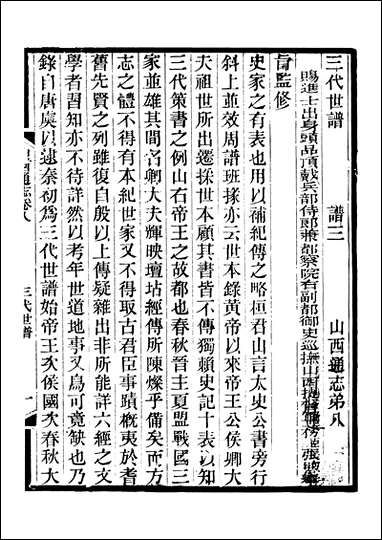 三代世譜 譜三 山西通志弟八
賜進士出身頭品頂戴兵部侍郎兼都察院右副都御史巡撫山西
旨監修
史家之有表也用以補紀傳之略桓君山言太史公書旁行
斜上並效周譜班掾亦云世本錄黃帝以來帝王公侯卿大
夫祖世所出遷採世本顧其書皆不傳獨賴史記十表以知
三代策書之例山右帝王之故都也春秋晉主夏盟戰國三
家並雄其間名卿大夫輝映壇坫經傳所陳燦乎備矣而方
志之體不得有本紀世家又不得取古君臣事蹟概夷於耆
舊先賢之列雖復自殷以上傳疑雜出非所能詳六經之文
學者習知亦不待詳然以考年世道地事又烏可竟缺也乃
錄自唐虞以逮秦初為三代世譜始帝王次侯國次春秋大
通志卷八 三代世譜 一